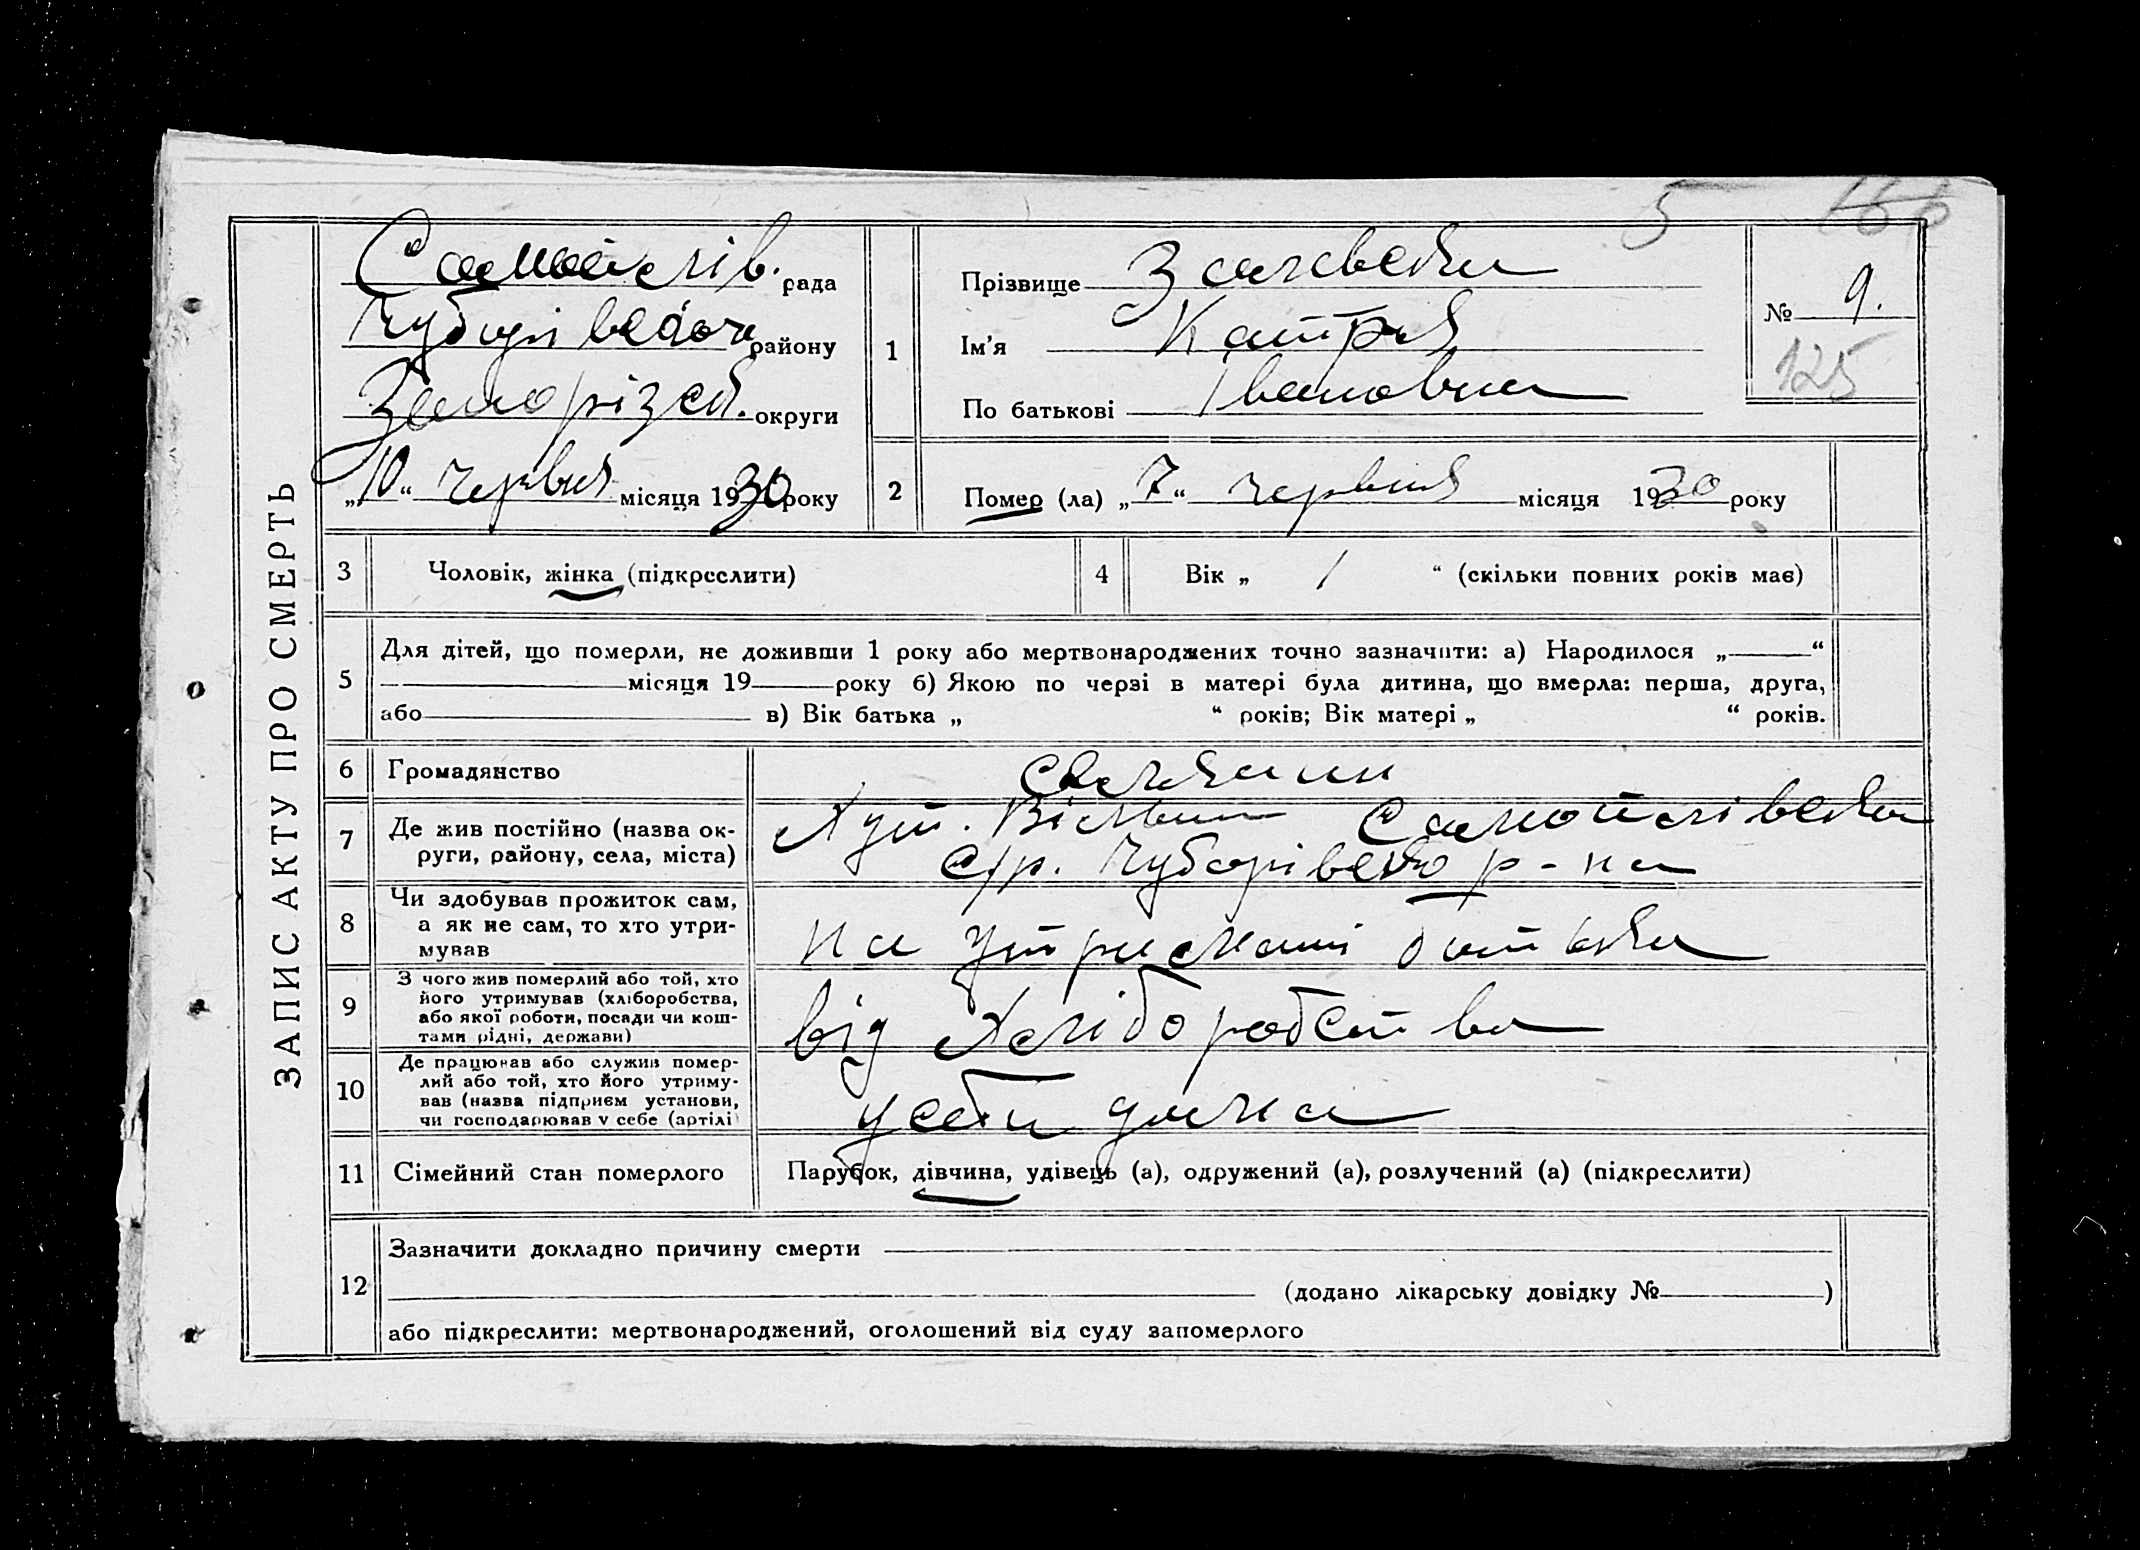 5 166
ЗАПИС АКТУ ПРО СМЕРТЬ
Самойлів. рада
Чубарівськ району
Запорізьк. округи
„10“ червня місяця 1930 року
1
Прізвище Залевська
Ім'я Катря
По батькові Івановна
№ 9.
125
2 Помер (ла) „7“ червня місяця 1930 року
3 Чоловік, жінка (підкреслити)
4 Вік „ 1 “ (скільки повних років має)
5 Для дітей, що померли, не доживши 1 року або мертвонароджених точно зазначити: а) Народилося „ “
місяця 19 року б) Якою по черзі в матері була дитина, що вмерла: перша, друга,
або в) Вік батька „ “ років; Вік матері „ “ років.
6 Громадянство селянин
7 Де жив постійно (назва ок-
руги, району, села, міста)
Хут. Самойлівська
с/р. Чубарівсько р-на
8 Чи здобував прожиток сам,
а як не сам, то хто утри-
мував
на утриманні батька
9 З чого жив померлий або той, хто
його утримував (хліборобства,
або якої роботи, посади чи кош-
тами рідні, держави)
від хліборобства
10 Де працював або служив помер-
лий або той, хто його утриму-
вав (назва підприєм установи,
чи господарював у себе (артілі)
у себе дома
11 Сімейний стан померлого Парубок, дівчина, удівець (а), одружений (а), розлучений (а) (підкреслити)
12 Зазначити докладно причину смерти
(додано лікарську довідку № )
або підкреслити: мертвонароджений, оголошений від суду запомерлого